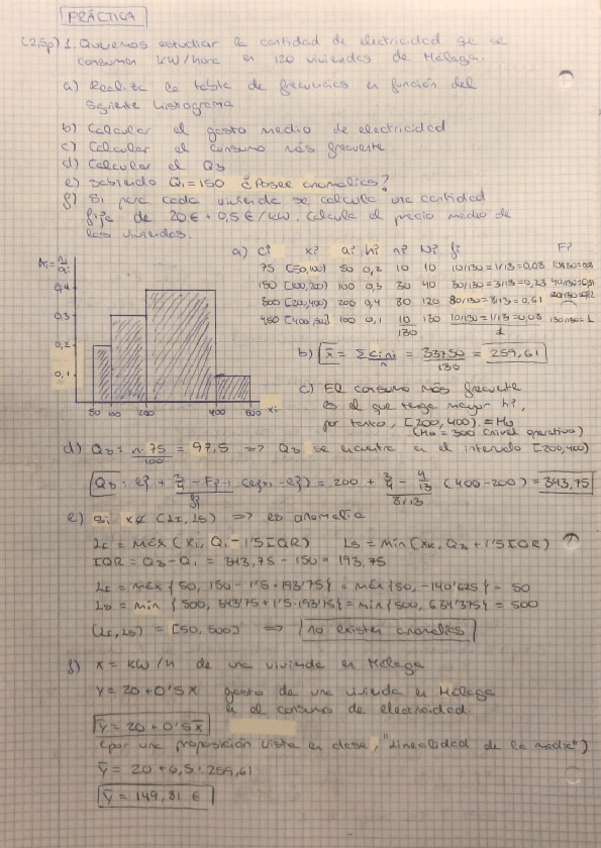 PRÁCTICA
(2,5p) 1. Queremos estudiar la cantidad de electricidad que se
consumen kW/hora en 120 viviendas de Málaga.
a) Realiza la tabla de frecuencias en función del
siguiente histograma
b) Calcular el gasto medio de electricidad
c) Calcular el consumo más frecuente
d) Calcular el Q3
e) Sabiendo Q1=150 ¿Posee anomalías?
f) Si para cada vivienda se calcula una cantidad
fija de 20€ + 0,5 €/kW. Calcula el precio medio de
las viviendas.
a) ci xi ai hi ni Ni fi Fi
hi = ni/ai
75 [50,100) 50 0,2 10 10 10/130=1/13=0,08
0,4
150 [100,200) 100 0,3 30 40 30/130=3/13=0,23
300 [200,400) 200 0,4 80 120 80/130=8/13=0,61
0,3
450 [400,500] 100 0,1 10 130 10/130=1/13=0,08 130/130=1
130 1
0,2
b) x̄ = Σcini/n = 33750/130 = 259,61
0,1
c) El consumo más frecuente
es el que tenga mayor hi,
50 100 200 400 500 xi
por tanto, [200,400) = Mo
(Mo = 300
d) Q3: n·75/100 = 97,5 => Q3 se encuentra en el intervalo [200,400)
Q3: ej + (3/4 - Fj-1)/fj (ej+1 - ej) = 200 + (3/4 - 4/13)/(8/13) (400-200) = 343,75
e) Si x∉(LI, LS) => es anomalía
LI = MÁX(x1, Q1 - 1'5 IQR) LS = Min(xk, Q3 + 1'5 IQR)
IQR = Q3 - Q1 = 343,75 - 150 = 193,75
LI = MÁX {50, 150 - 1'5·193'75} = MÁX {50, -140'625} = 50
LS = Min {500, 343'75 + 1'5·193'75} = min {500, 634'375} = 500
(LI, LS) = [50, 500] => no existen anomalías
f) X = kW/h de una vivienda en Málaga
Y = 20 + 0'5X gasto de una vivienda en Málaga
en el consumo de electricidad.
Ȳ = 20 + 0'5 X̄
(por una proposición vista en clase, "Linealidad de la media")
Ȳ = 20 + 0,5 · 259,61
Ȳ = 149,81 €